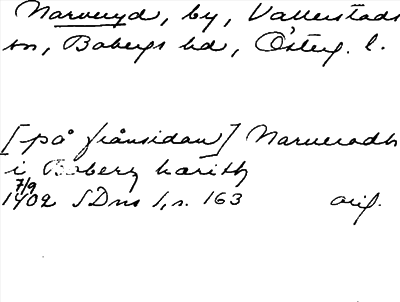 Narveryd, by, Vallerstads
sn, Bobergs hd, Österg. l.
[på frånsidan] Narueradh
i Boberg hærith
7/9
1402 SDns 1, s. 163 orig.